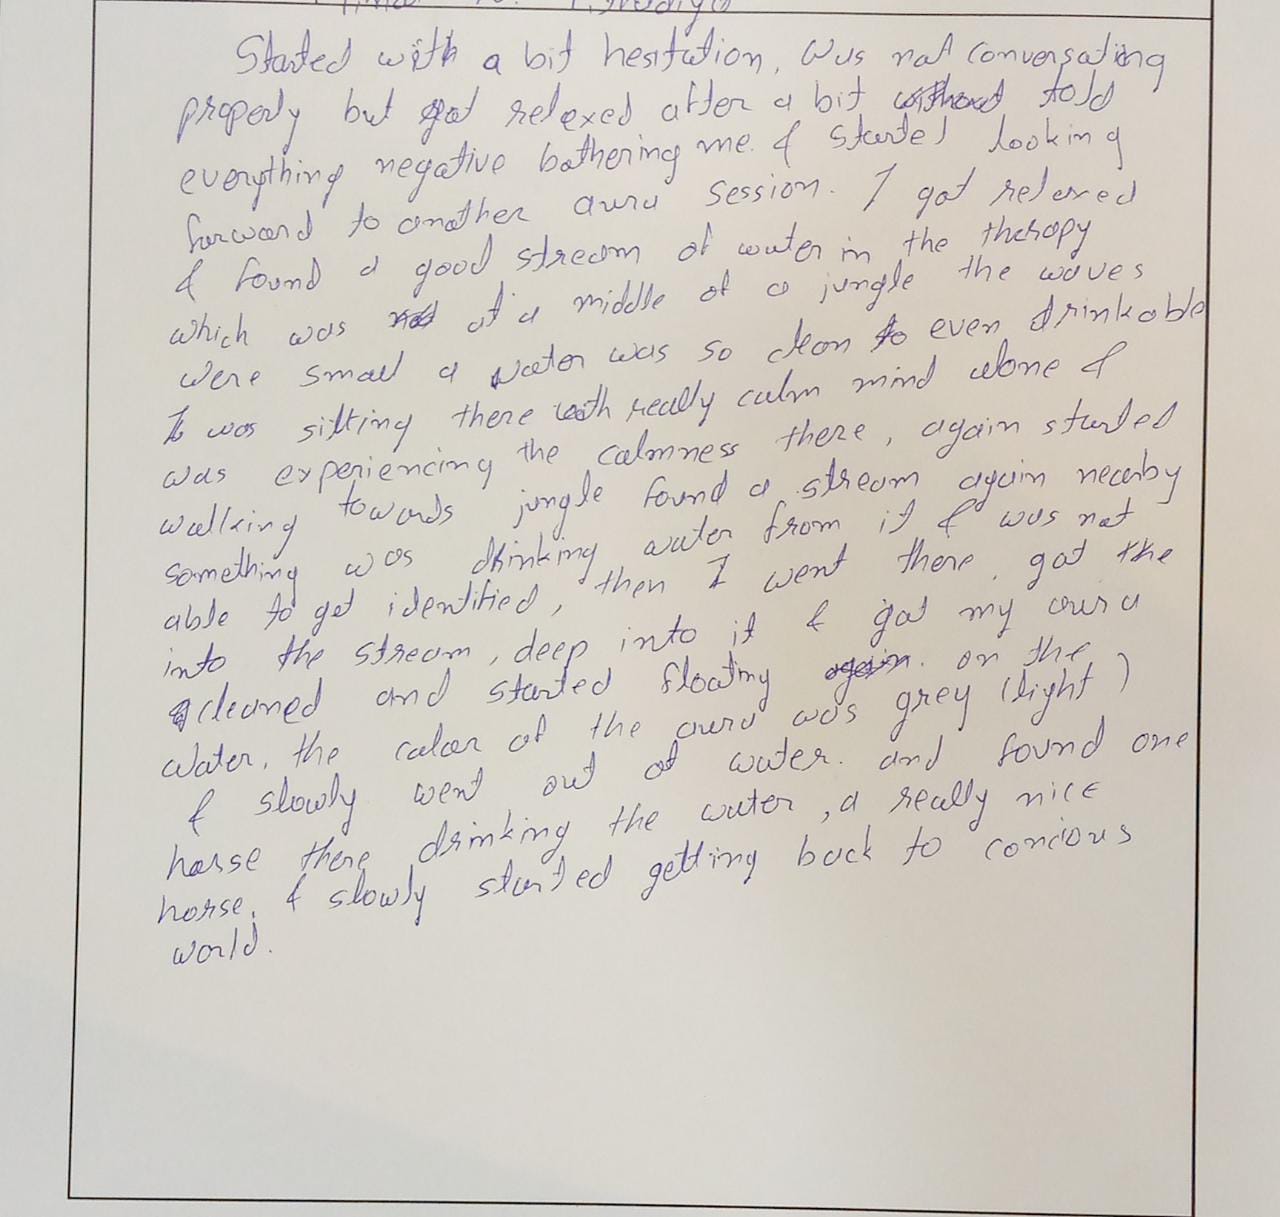 Started with a bit hesitation, Was not conversating
properly but got relexed after a bit without told
everything negative bothering me. & started looking
forward to another aura session. I got relexed
& found a good stream of water in the therapy
which was not at a middle of a jungle the waves
were small a water was so clean to even drinkable
I was sitting there with really calm mind alone &
was experiencing the calmness there, again started
walking towards jungle found a stream again nearby
something was drinking water from it & was not
able to get identified, then I went there, got the
into the stream, deep into it & got my aura
cleaned and started floating again. on the
water, the color of the aura was grey (light)
& slowly went out of water. and found one
horse there drinking the water, a really nice
horse. & slowly started getting back to concious
world.